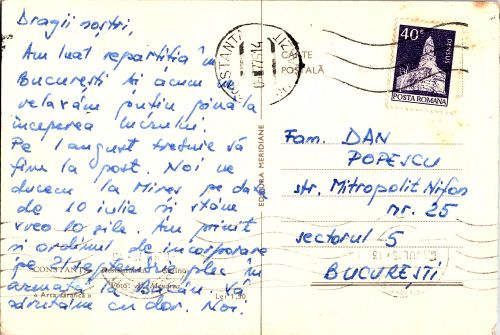 Dragii noștri,
Am luat repartiția în
București și acum ne
relaxăm puțin până la
începerea lucrului.
Pe 1 august trebuie să
fim la post. Noi ne
ducem la Mires pe data
de 10 iulie și stăm
vreo 10 zile. Am primit
și ordinul de încorporare
pe 21 septembrie plec în
armată la Bacău. Vă
sărutăm cu dor. Noi.
CONSTANȚA
Cazino
Foto:
« Arta Grafică »
Lei 1,50
EDITURA MERIDIANE
CONSTANȚA
77-14
CARTE
POȘTALĂ
40
DENSUȘ
POSTA ROMANA
Fam. DAN
POPESCU
str. Mitropolit Nifon
nr. 25
sectorul 5
BUCUREȘTI